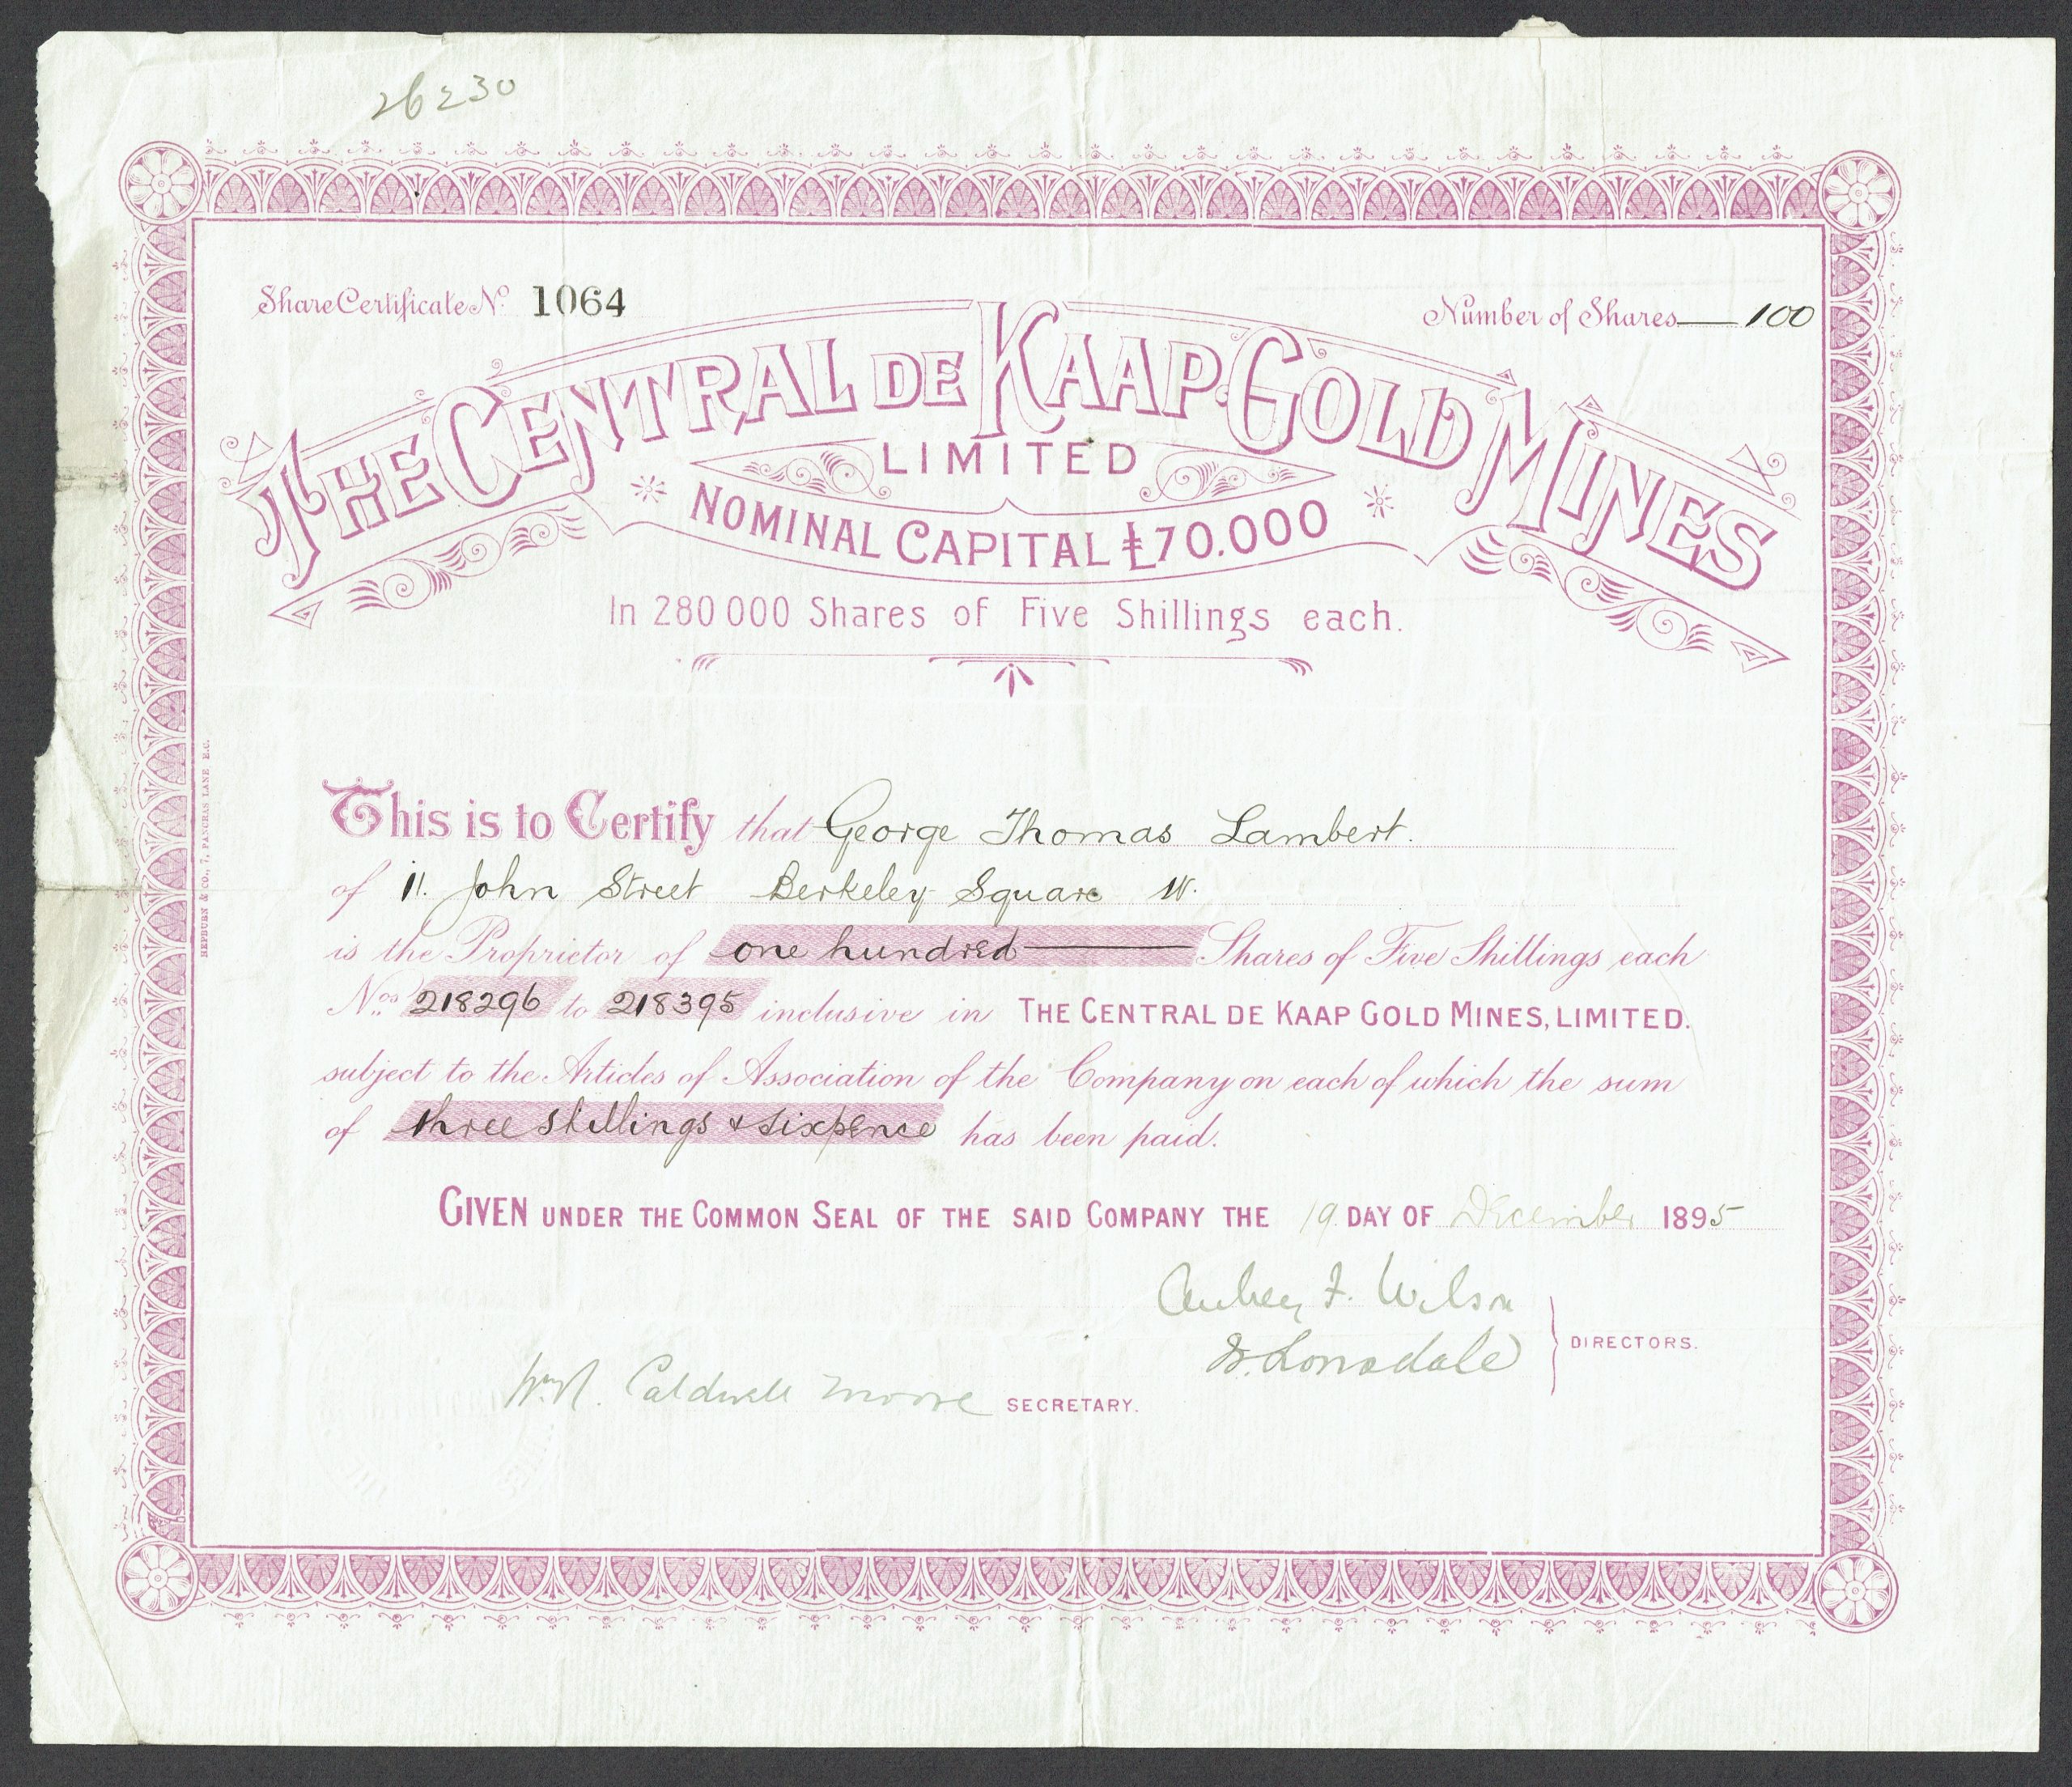 26230
Share Certificate No. 1064
Number of Shares 100
THE CENTRAL DE KAAP GOLD MINES
LIMITED
NOMINAL CAPITAL £70.000
In 280 000 Shares of Five Shillings each.
This is to Certify that George Thomas Lambert.
of 11. John Street Berkeley Square W.
is the Proprietor of one hundred Shares of Five Shillings each
Nos. 218296 to 218395 inclusive in THE CENTRAL DE KAAP GOLD MINES, LIMITED.
subject to the Articles of Association of the Company on each of which the sum
of three shillings & sixpence has been paid.
GIVEN UNDER THE COMMON SEAL OF THE SAID COMPANY THE 19 DAY OF December 1895
Aubrey F. Wilson
Lonsdale
DIRECTORS.
Caldwell Moore SECRETARY.
HEPBURN & CO., 7, PANCRAS LANE E.C.